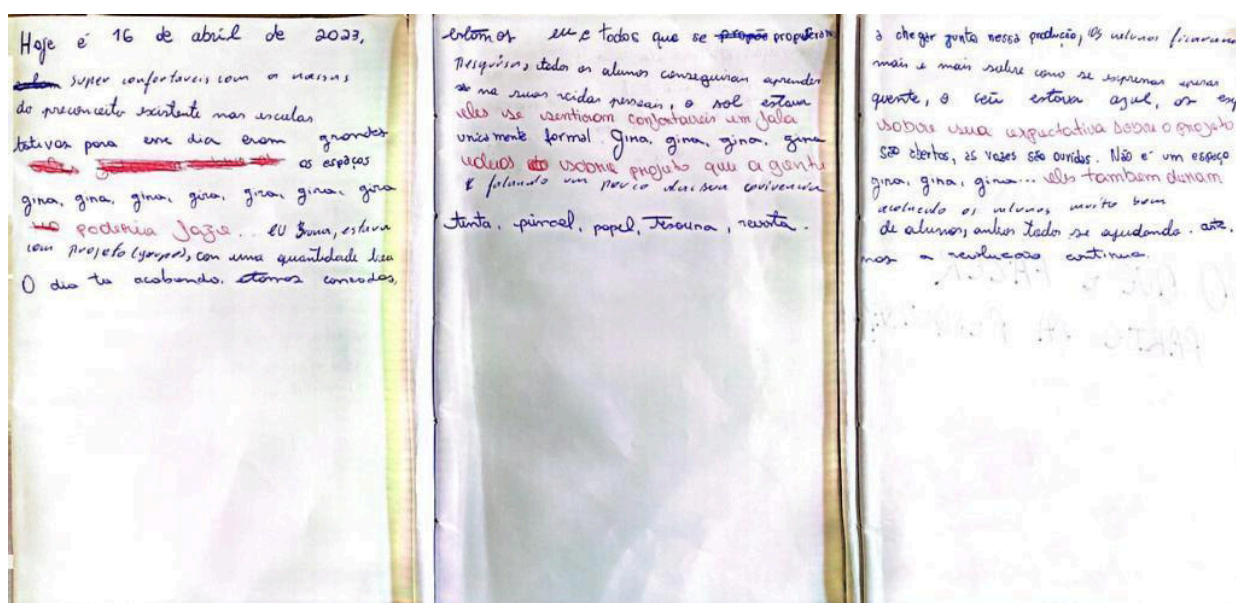 Hoje é 16 de abril de 2023,
super confortaveis com a nossas
do preconceito existente nas escolas
tativas para esse dia eram grandes
os espaços
gina, gina, gina, gina, gina, gina, gina
poderia fazer... eu Bruna, estava
com projeto (grupos), com uma quantidade boa
O dia ta acabando. etamos cansados,
estamos eu e todos que se propuseram
pesquisas, todos os alunos conseguiram aprender
na suas vidas pessoais, o sol estava
eles se sentiram confortaveis em fala
unicamente formal. Gina, gina, gina, gina
ideias sobre projeto que a gente
e falando um pouco da sua convivencia
tinta, pincel, papel, tesoura, revista.
a chegar junto nessa produção, os alunos ficaram
mais e mais sobre como se expressa
quente, o céu estava azul, as exp
sobre sua expectativa sobre o projeto
são abertos, as vozes são ouvidas. Não é um espaço
gina, gina, gina... eles tambem deram
os alunos muito bem
de alunos, todos se ajudando. arte.
mas a revolucao continua.